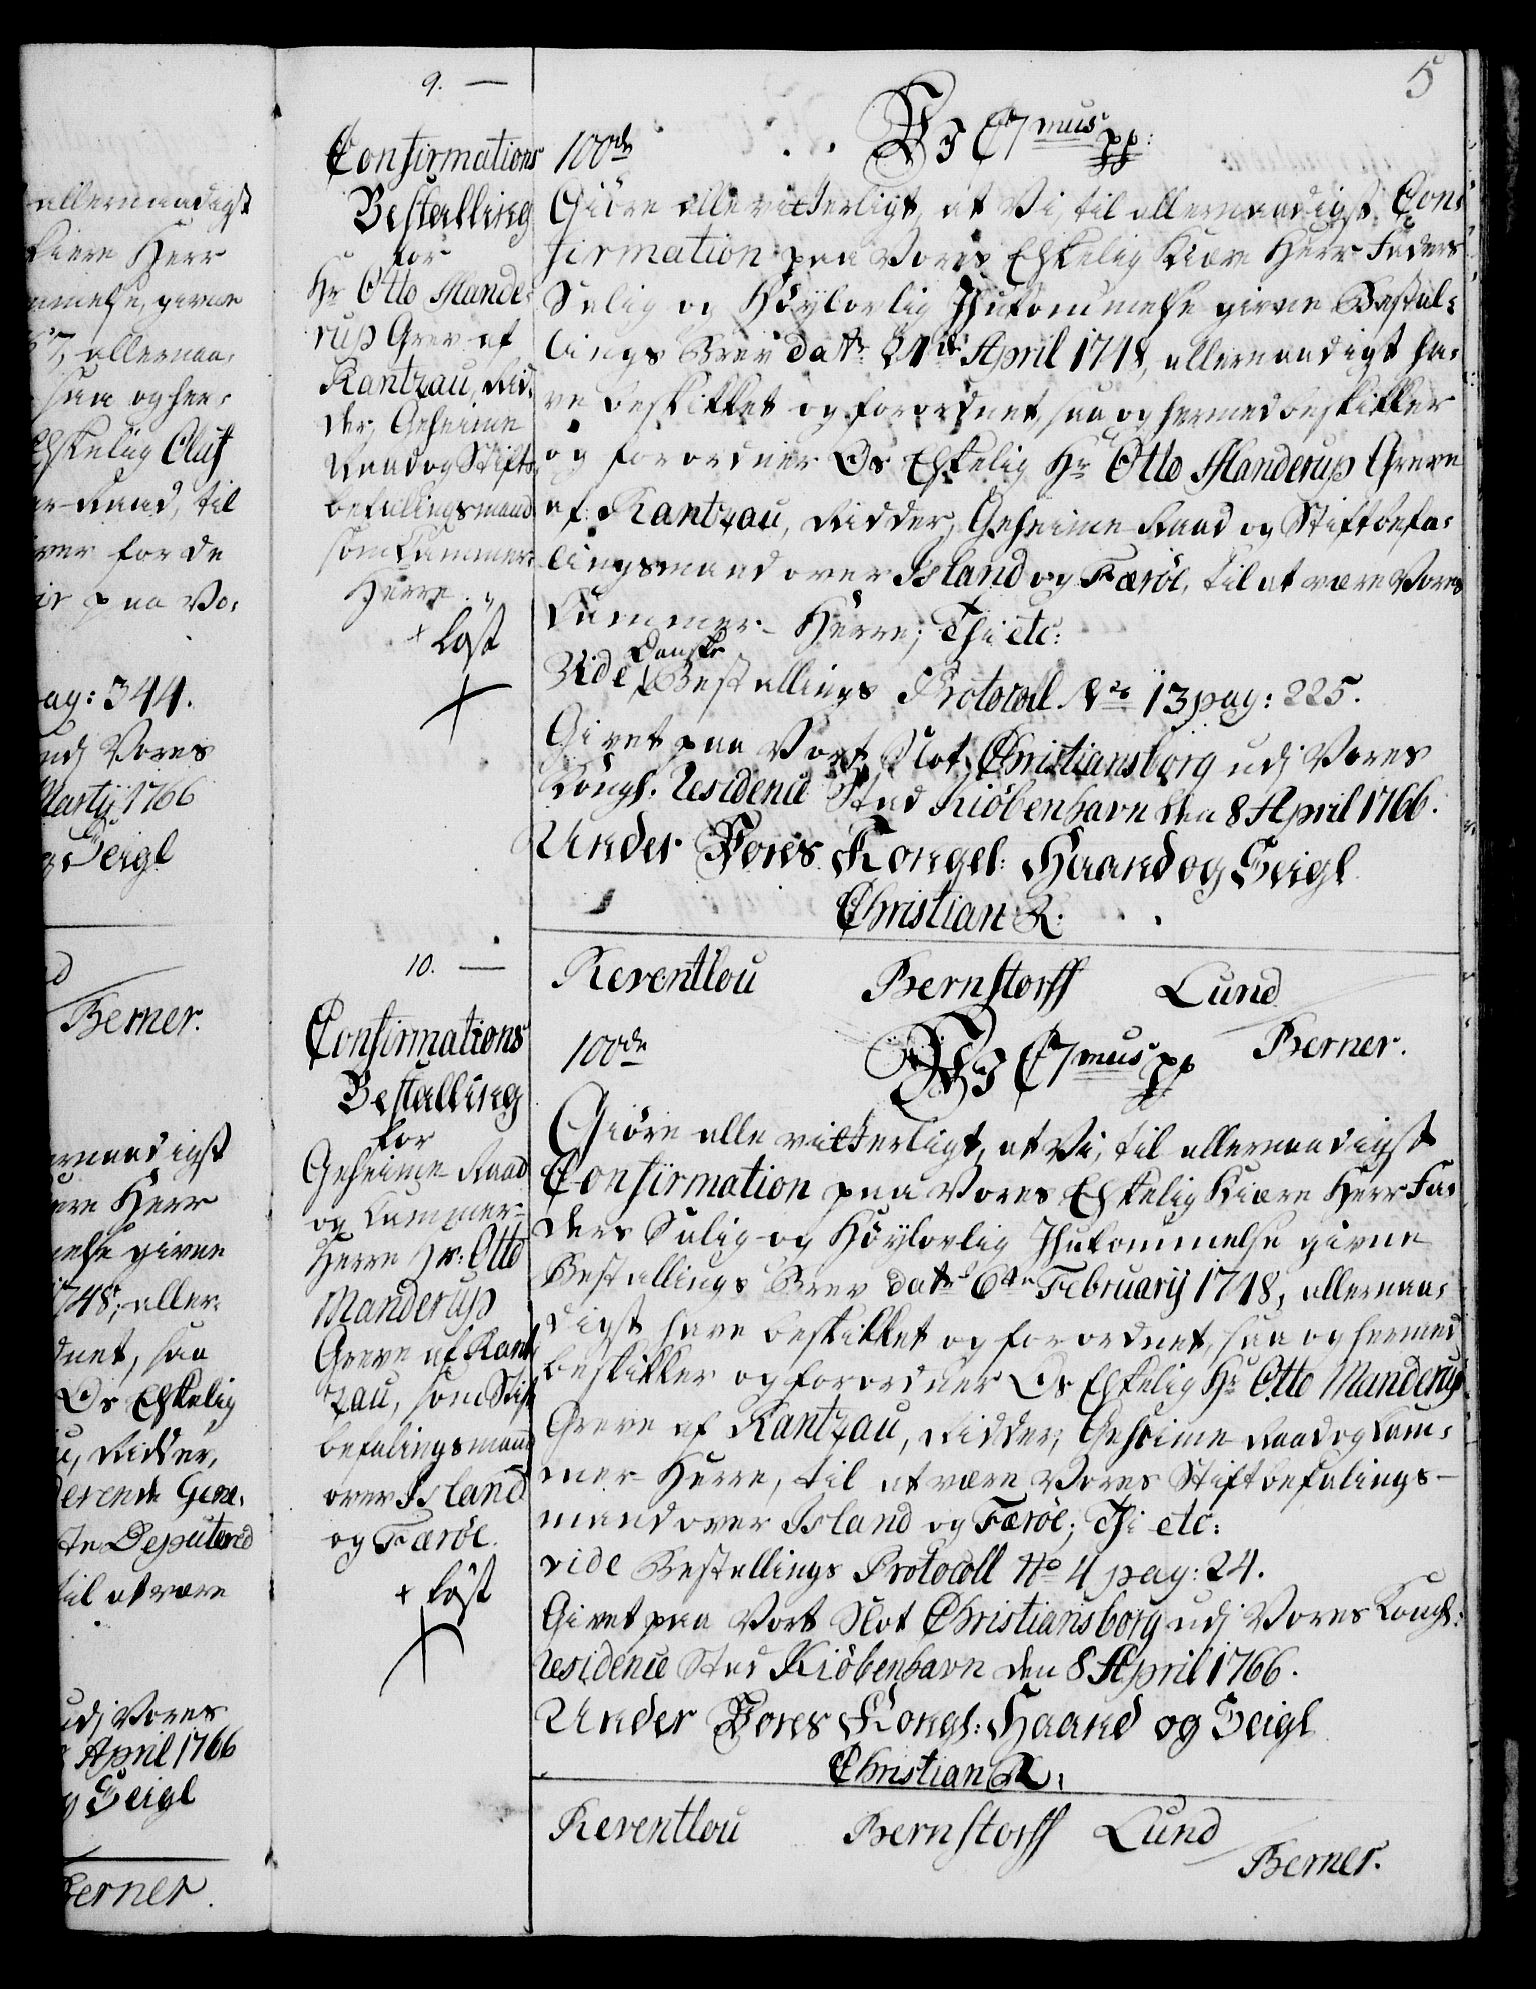 5
9. —
Confirmations
Bestalling
for
Hr Otto Mande-
rup Grev af
Rantzau, Rid-
der, Geheime
Raad og Stifts
befalingsmand
som Cammer-
Herre.
+ løst
100de
Vi C7mus pp:
Giøre alle vitterligt, at Vi, til allernaadigst Con-
firmation paa Vores Elskelig Kiære Herr Faders
Salig og Høylovlig Ihukommelse givne Bestal-
lings Brev dat: April 1748, allernaadigst ha-
ve beskikket og forordnet, saa og hermed beskikker
og forordner Os Elskelig Hr Otto Manderup Greve
af Rantzau, Ridder, Geheime Raad og Stiftbefa-
lingsmand over Island og Færöe, til at være Vores
Cammer-Herre; Thi etc:
Vide Danske Bestallings Protocoll No 13 pag: 225.
Givet paa Vort Slot Christiansborg udj Vores
Kongl. Residence Stad Kiöbenhavn den 8 April 1766.
Under Vores Kongel: Haand og Seigl
Christian R.
Reventlou Bernstorff Lund
Berner.
10. —
Confirmations
Bestalling
for
Geheime Raad
og Cammer-
Herre Hr: Otto
Manderup
Greve af Rant
zau, som Stift
befalingsmand
over Island
og Færöe.
+ løst
100de
Vi C7mus pp
Giöre alle vitterligt, at Vi, til allernaadigst
Confirmation paa Vores Elskelig Kiære Herr Fa-
ders Salig og Höylovlig Ihukommelse givne
Bestallings Brev dat: 6te February 1748, allernaa-
digst have beskikket og forordnet, saa og hermed
beskikker og forordner Os Elskelig Hr Otto Manderup
Greve af Rantzau, Ridder, Geheime Raad og Cam-
mer Herre, til at være Vores Stiftbefalings-
mand over Island og Færöe; Thi etc:
vide Bestallings Protocoll No 4 pag: 24.
Givet paa Vort Slot Christiansborg udj Vores Kongl:
Residence Stad Kiöbenhavn den 8 April 1766.
Under Vores Kongl: Haand og Seigl
Christian R.
Reventlou Bernstorff Lund
Berner.
allernaadigst
Kiere Herr
givne
allernaa-
saa og her-
Elskelig Oluf
Raad, til
for de
paa Vo-
pag: 344.
udj Vores
Martij 1766
Seigl
Berner.
Herr
givne
1748, aller-
saa
Os Elskelig
Ridder,
Gene-
Deputered
til at være
udj Vores
April 1766
Seigl
Berner.